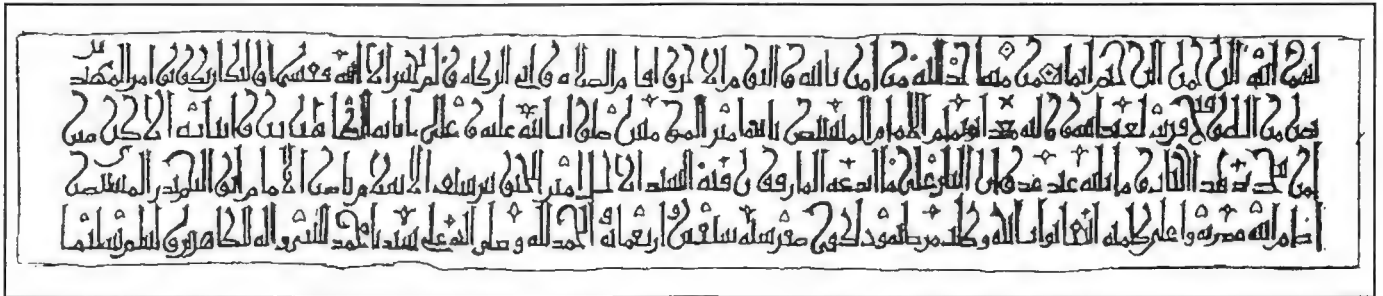 بسم الله الرحمن الرحيم انما يعمر مساجد الله من امن بالله واليوم الاخر واقام الصلاة واتى الزكاة ولم يخش الا الله فعسى اولئك ان يكونوا من المهتدين
نصر من الله وفتح قريب لعبد الله ووليه معد ابي تميم الامام المستنصر بالله امير المؤمنين صلوات الله عليه وعلى ابائه الطاهرين وابنائه الاكرمين
امر بتجديد هذا المارقون السيد الاجل امير الجيوش سيف الاسلام ناصر الامام ابو النجم بدر المستنصري
ادام الله قدرته واعلى كلمته ابتغا ثواب الله وطلب مرضاته وذلك في صفر سنة سبعين واربعمائة الحمد لله وصلى الله على سيدنا محمد النبي واله الطاهرين وسلم تسليما